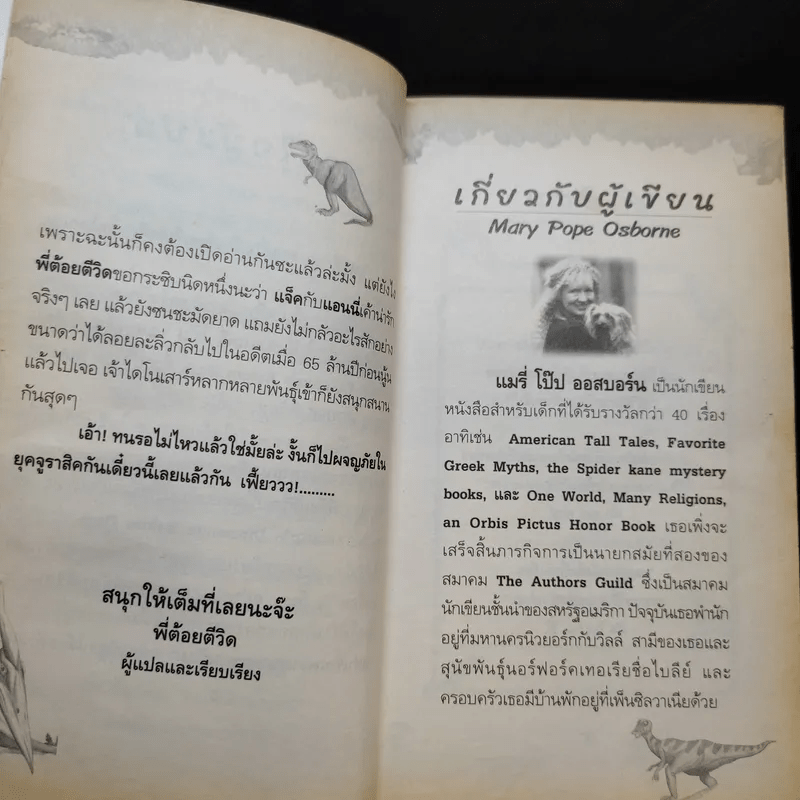 เพราะฉะนั้นก็คงต้องเปิดอ่านกันซะแล้วล่ะมั้ง แต่ยังไง
พี่ต้อยตีวิดขอกระซิบนิดหนึ่งนะว่า แจ็คกับแอนนี่เค้าน่ารัก
จริงๆ เลย แล้วยังซนซะมัดยาด แถมยังไม่กลัวอะไรสักอย่าง
ขนาดว่าได้ลอยละลิ่วกลับไปในอดีตเมื่อ 65 ล้านปีก่อนนู้น
แล้วไปเจอ เจ้าไดโนเสาร์หลากหลายพันธุ์เข้าก็ยังสนุกสนาน
กันสุดๆ
เอ้า! ทนรอไม่ไหวแล้วใช่มั้ยล่ะ งั้นก็ไปผจญภัยใน
ยุคจูราสิคกันเดี๋ยวนี้เลยแล้วกัน เฟี้ยววว!.........
สนุกให้เต็มที่เลยนะจ๊ะ
พี่ต้อยตีวิด
ผู้แปลและเรียบเรียง
เกี่ยวกับผู้เขียน
Mary Pope Osborne
แมรี่ โป๊ป ออสบอร์น เป็นนักเขียน
หนังสือสำหรับเด็กที่ได้รับรางวัลกว่า 40 เรื่อง
อาทิเช่น American Tall Tales, Favorite
Greek Myths, the Spider kane mystery
books, และ One World, Many Religions,
an Orbis Pictus Honor Book เธอเพิ่งจะ
เสร็จสิ้นภารกิจการเป็นนายกสมัยที่สองของ
สมาคม The Authors Guild ซึ่งเป็นสมาคม
นักเขียนชั้นนำของสหรัฐอเมริกา ปัจจุบันเธอพำนัก
อยู่ที่มหานครนิวยอร์กกับวิลล์ สามีของเธอและ
สุนัขพันธุ์นอร์ฟอร์คเทอเรียชื่อไบลีย์ และ
ครอบครัวเธอมีบ้านพักอยู่ที่เพ็นซิลวาเนียด้วย